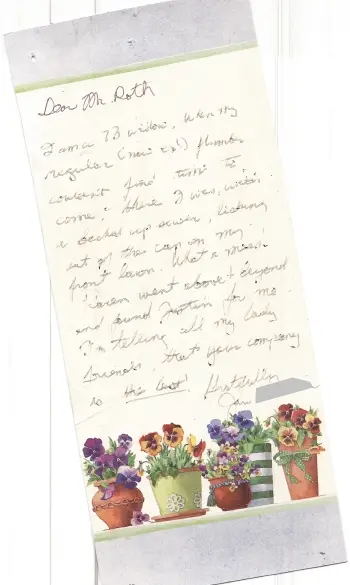 Dear Mr. Roth
I am a 73 widow, when my
regular (now ex!) plumber
couldn't find time to
come. There I was, with
a backed up sewer, leaking
out of the cap on my
front lawn. What a mess.
Karen went above & beyond
and found Justin for me.
I'm telling all my lady
friends, that your company
is the best! Gratefully